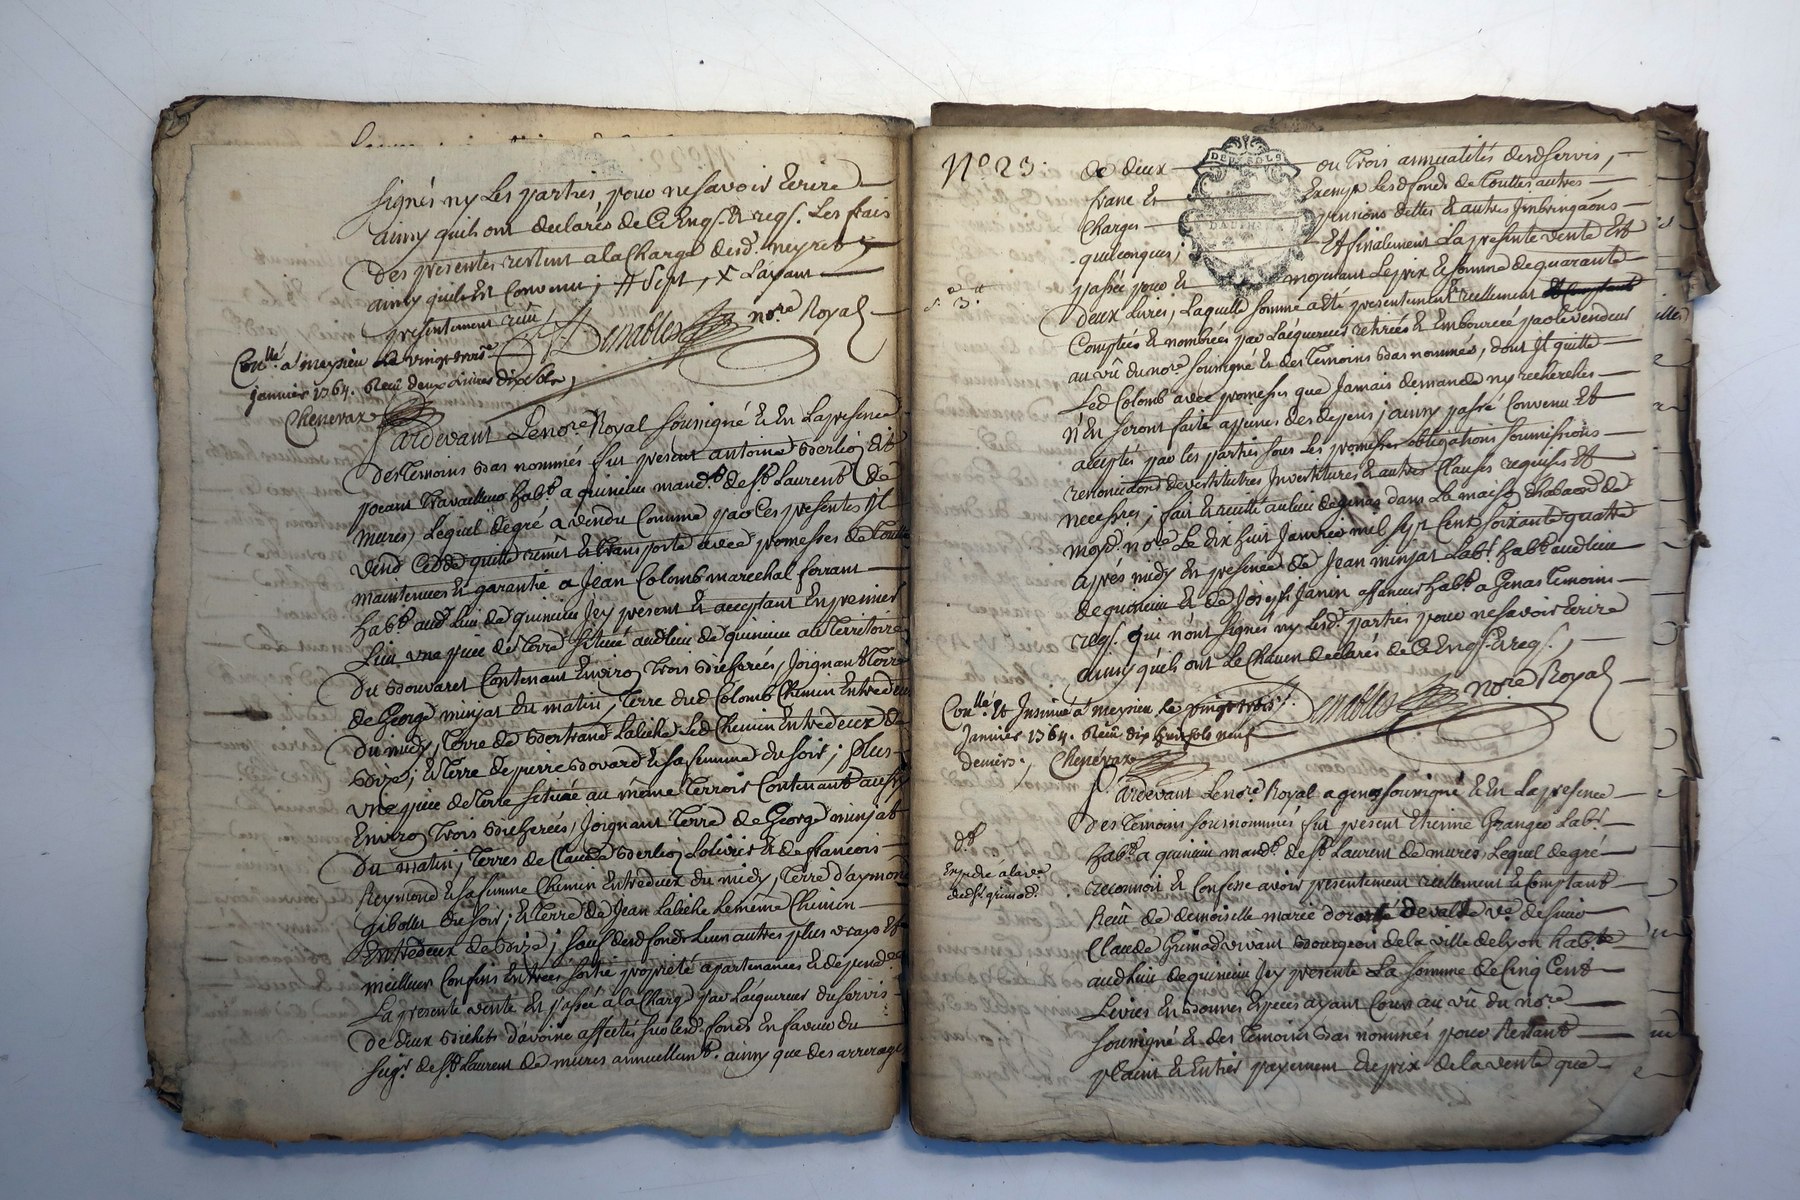 signés ny les parties, pour ne savoir Ecrire
ainsy quils ont declarés de ce Enqs. & reqs. Les frais
des presentes restent a la Charge dud. neyret
ainsy quil est Convenu; # Sept, X Layant
presentement reçu,
Denables nore. Royal
Conllé. a meysieu le vingt trois
janvier 1764. Reçu deux Livres dix sols,
Chenevax
Pardevant Le nore. Royal soussigné & En La presence
des temoins bas nommés fut present antoine Berlioz dit
jocant travailleur habt. a quincieu mandt. de St. Laurent de
mures, Lequel de gré a vendu Comme par Ces presentes Il
vend Cedde quitte remet & transporte avec promesses de toutte
maintenue & garantie a Jean Colomb marechal ferrant
habt. aud. Lieu de quincieu Icy present & acceptant En premier
Lieu une piece de terre située aud. lieu de quincieu au territoire
du Bouvaret Contenant Environ trois Bicherées, Joignant terre
de George minjat du matin, terre dud. Colomb Chemin Entredeux
du midy, terre de Bertrand Labiche led. Chemin Entredeux de
Bize; & terre de pierre Bovard & sa femme du soir; plus
une piece de terre située au même terroir Contenant aussy
Environ trois Bicherées, Joignant terre de George minjat
du matin, terres de Claude Berlioz Lolivier & de francois
Reymond & sa femme Chemin Entredeux du midy, terre d'aymond
gibollet du soir; & terre de Jean Labiche le même Chemin
Entredeux de Bize; sauf desd. fonds Leurs autres plus vrays &
meilleurs Confins Entrées sortie proprieté apartenances & dependces
La presente vente Est passée a la Charge par L'aquereur du servis
de deux Bichets d'avoine affectés sur lesd. fonds En faveur du
Seigr. de St. Laurent de mures annuellemt. ainsy que des arrerages
No. 23.
DEUX SOLS
DAUPHINE
de deux ou trois annualités dud. servis,
franc & Exempt lesd. fonds de touttes autres
Charges pensions dettes & autres Imbringaons
quelconques; Et finalement La presente vente Est
passée pour & moyenant Le prix & somme de quarante
deux Livres, Laquelle somme a été presentement reellement
Comptées & nombrées par L'aquereur retirées & Emboursée par le vendeur
au vû du nore. soussigné & des temoins Bas nommés, dont Il quitte
Led. Colomb avec promesses que Jamais demande ny recherches
n'En seront faite a peines des depens; ainsy passé Convenu Et
acceptés par les parties sous les promesses obligations soumissions
renonciaons devestitures Investitures & autres Clauses requises Et
necessres; fait & recitté au lieu de genas dans La maison d'habaon de
moyd. nore. Le dix huit Janvier mil sept Cent soixante quatre
après midy En presence de Jean minjat Labr. habt. aud. lieu
de quincieu & de Joseph Janin affaneur habt. a Genas temoins
reqs. qui n'ont signés ny lesd. parties pour ne savoir Ecrire
ainsy quils ont Le Chacun declarés de ce Enqs. & reqs.,
Denables nore. Royal
Conllé. Et Insinué a meysieu le vingt trois
Janvier 1764. Reçu dix huit sols neuf
deniers, Chenevax
Pardevant Le nore. Royal a genas soussigné & En La presence
des temoins sousnommés fut present Etienne Granger Labr.
habt. a quincieu mandt. de St. Laurent de mures, Lequel de gré
reconnoit & Confesse avoir presentement reellement & Comptant
Reçû de demoiselle marie dorotté devalde ve. de sieur
Claude Grimod vivant Bourgeois de la ville de Lyon habte.
aud. Lieu de quincieu Icy presente La somme de Cinq Cent
Livres En Bonnes Especes ayant Cours au vû du nore.
soussigné & des temoins Bas nommés pour Restant
plain & Entier payement du prix de la vente que